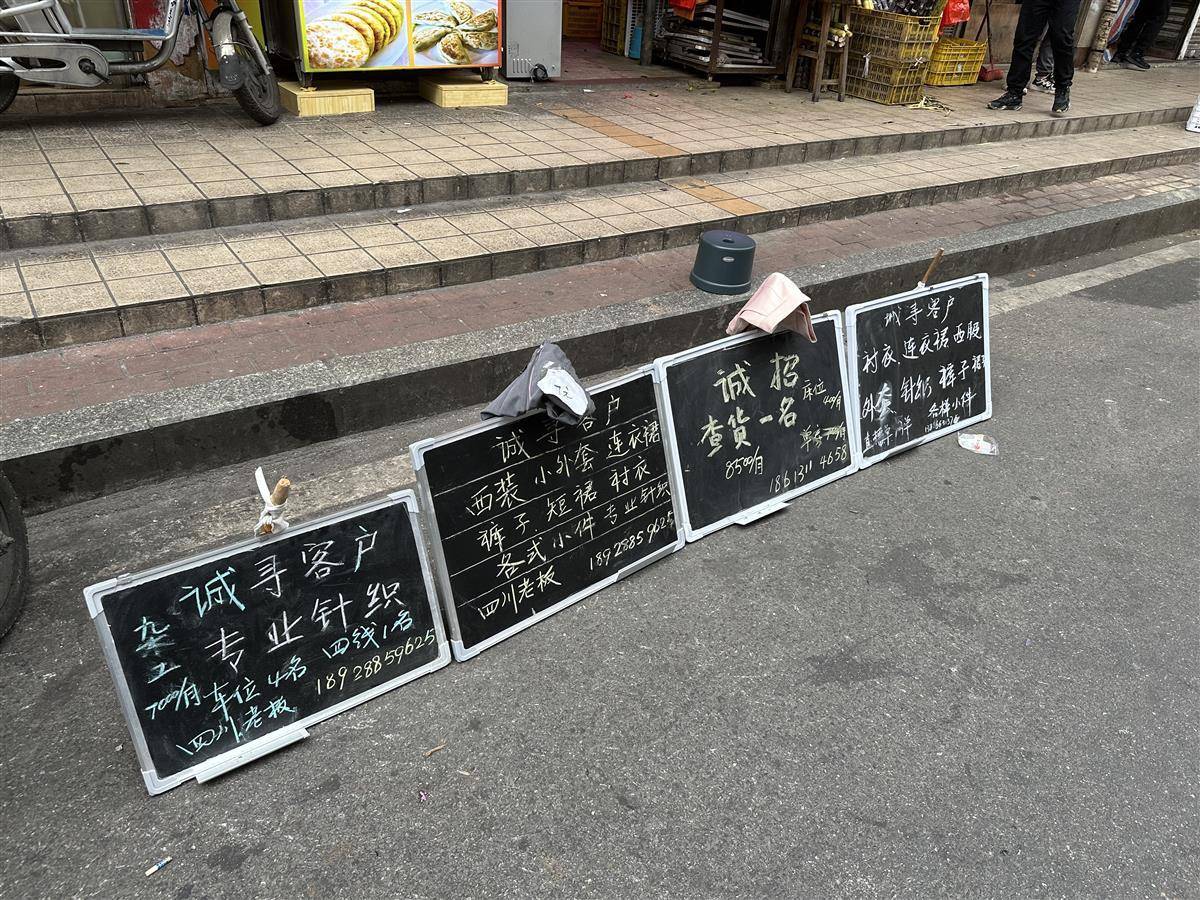 诚寻客户
专业针织
7000/月 车位4名 四线1名
四川老板 18928859625
诚寻客户
西装 小外套 连衣裙
裤子、短裙 衬衣
各式小件 专业针织
四川老板 18928859625
诚招
查货一名
床位
8500/月
18613114658
诚寻客户
衬衣 连衣裙 西服
外套 针织 裤子
各样小件